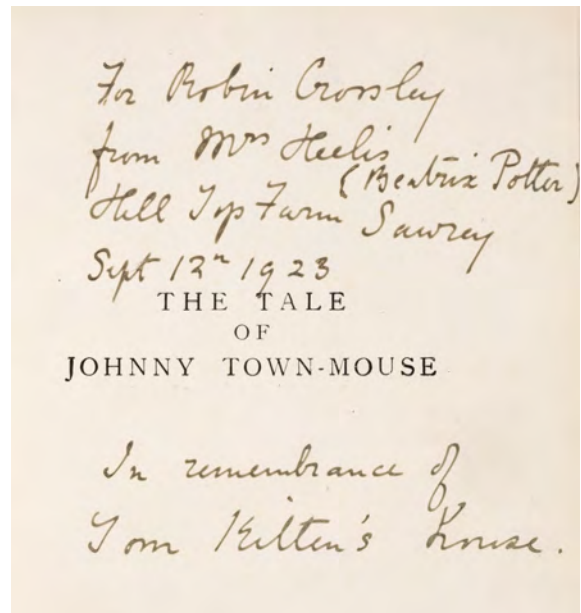 For Robin Crossley
from Mrs Heelis
(Beatrix Potter)
Hill Top Farm Sawrey
Sept 12th 1923
THE TALE
OF
JOHNNY TOWN-MOUSE
In remembrance of
Tom Kitten's House.